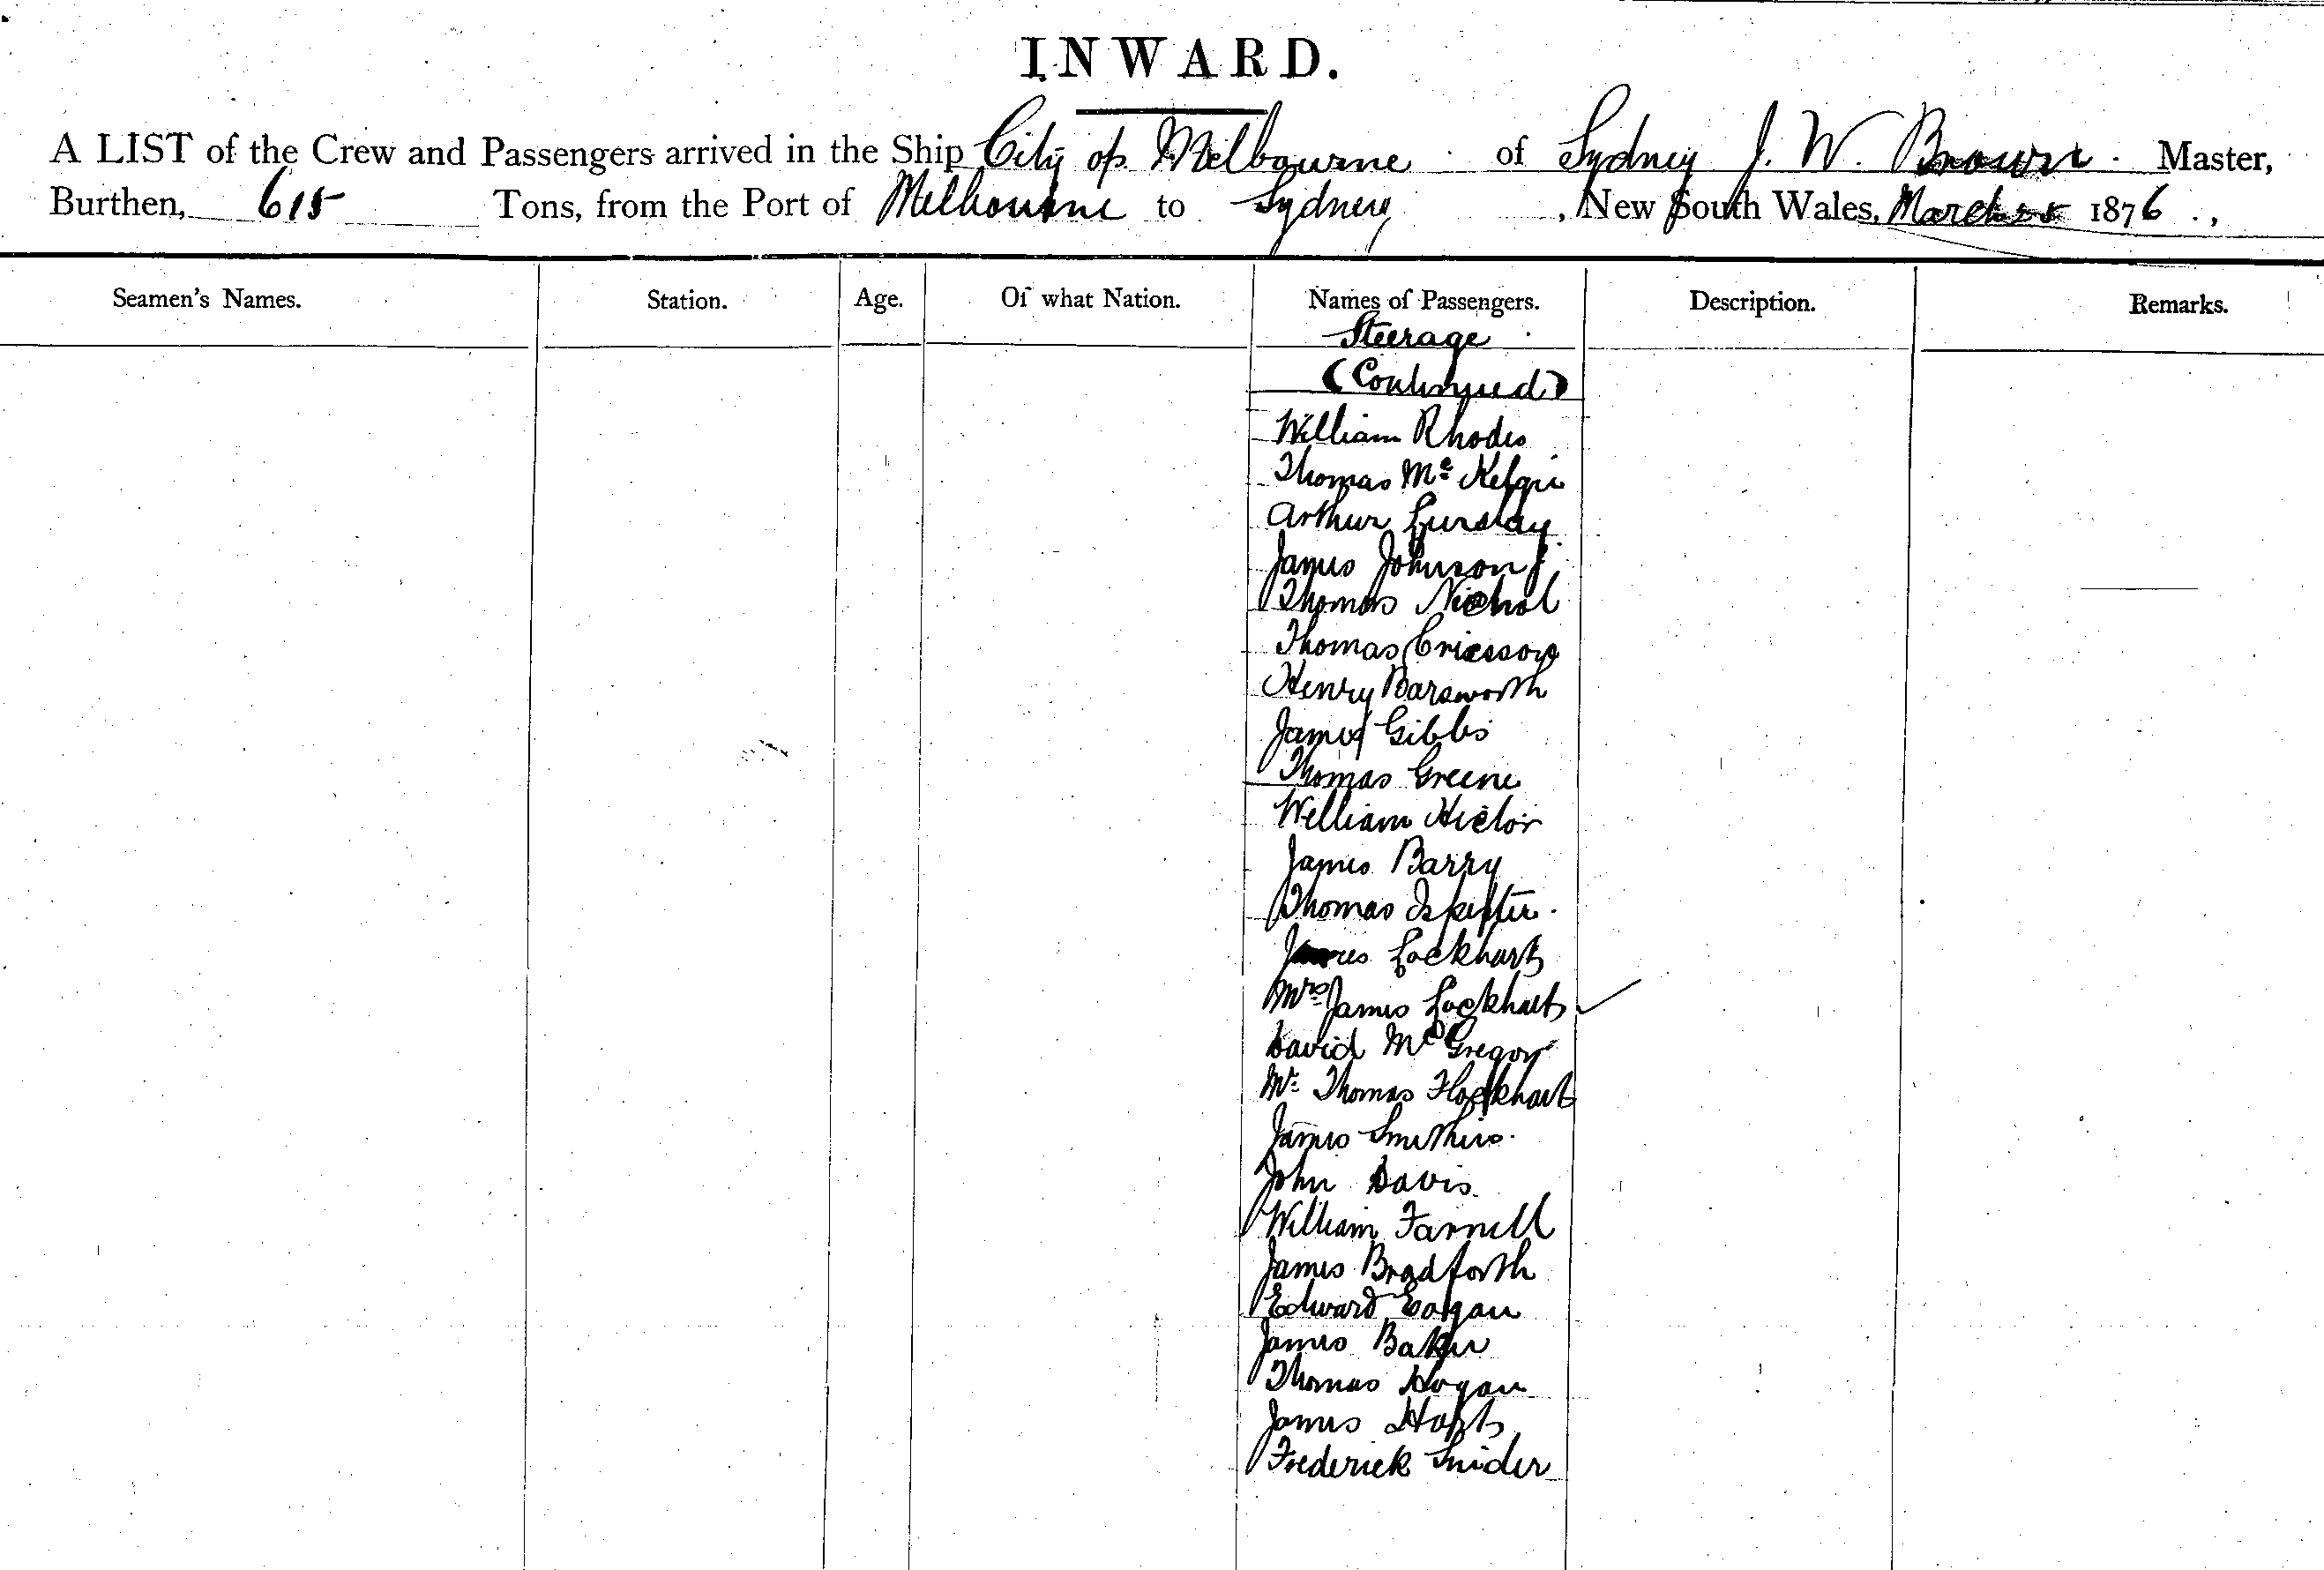 INWARD.
A LIST of the Crew and Passengers arrived in the Ship City of Melbourne of Sydney J. W. Brown. Master,
Burthen, 615 Tons, from the Port of Melbourne to Sydney, New South Wales, March 1876.,
Seamen's Names. Station. Age. Of what Nation. Names of Passengers. Description. Remarks.
Steerage
(Continued)
William Rhodes
Thomas Mc
Arthur
James Johnson
Thomas Nichol
Thomas Ericsson
Henry Barsworth
James Gibbs
Thomas Greene
William Hector
James Barry
Thomas
James Lockhart
Mrs James Lockhart
David McGregor
Mr Thomas Flockhart
James Smithers.
John Davis
William Farnell
James Bradforth
Edward Eagan
James Baker
Thomas Hogan
James
Frederick Snider